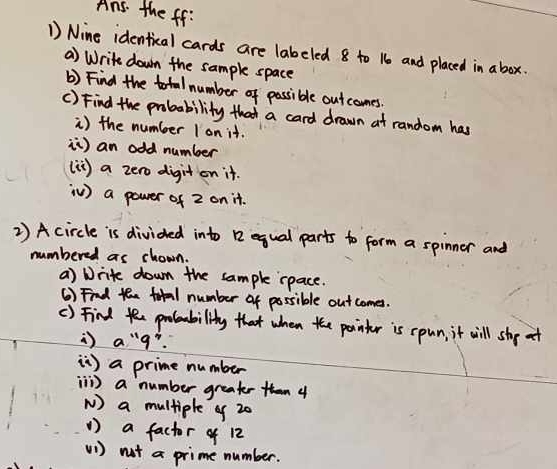 Ans. the ff:
1) Nine identical cards are labeled 8 to 16 and placed in a box.
a) Write down the sample space
b) Find the total number of possible outcomes.
c) Find the probability that a card drawn at random has
i) the number 1 on it.
ii) an odd number
iii) a zero digit on it.
iv) a power of 2 on it.
2) A circle is divided into 12 equal parts to form a spinner and
numbered as shown.
a) Write down the sample space.
b) Find the total number of possible outcomes.
c) Find the probability that when the pointer is spun, it will stop at
i) a "9".
ii) a prime number
iii) a number greater than 4
iv) a multiple of 20
v) a factor of 12
vi) not a prime number.